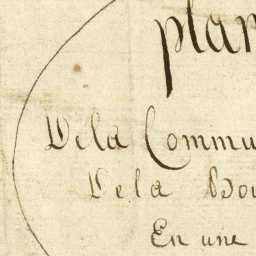 plan
De la Commu
De la Bou
En une